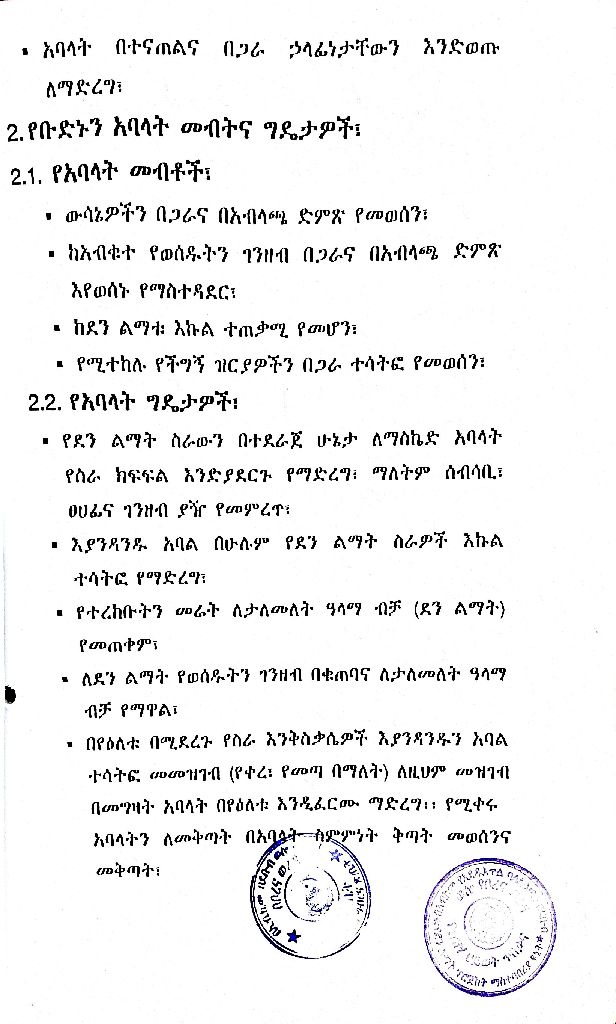 ▪ አባላት በተናጠልና በጋራ ኃላፊነታቸውን እንድወጡ
ለማድረግ፣
2.የቡድኑን አባላት መብትና ግዴታዎች፣
2.1. የአባላት መብቶች፣
▪ ውሳኔዎችን በጋራና በአብላጫ ድምጽ የመወሰን፣
▪ ከአብቁተ የወሰዱትን ገንዘብ በጋራና በአብላጫ ድምጽ
እየወሰኑ የማስተዳደር፣
▪ ከደን ልማቱ እኩል ተጠቃሚ የመሆን፣
▪ የሚተከሉ የችግኝ ዝርያዎችን በጋራ ተሳትፎ የመወሰን፣
2.2. የአባላት ግዴታዎች፣
▪ የደን ልማት ስራውን በተደራጀ ሁኔታ ለማስኬድ አባላት
የስራ ክፍፍል እንድያደርጉ የማድረግ፣ ማለትም ሰብሳቢ፣
ፀሀፊና ገንዘብ ያዥ የመምረጥ፣
▪ እያንዳንዱ አባል በሁሉም የደን ልማት ስራዎች እኩል
ተሳትፎ የማድረግ፣
▪ የተረከቡትን መሬት ለታለመለት ዓላማ ብቻ (ደን ልማት)
የመጠቀም፣
▪ ለደን ልማት የወሰዱትን ገንዘብ በቁጠባና ለታለመለት ዓላማ
ብቻ የማዋል፣
▪ በየዕለቱ በሚደረጉ የስራ እንቅስቃሴዎች እያንዳንዱን አባል
ተሳትፎ መመዝገብ (የቀረ፣ የመጣ በማለት) ለዚህም መዝገብ
በመግዛት አባላት በየዕለቱ እንዲፈርሙ ማድረግ፡፡ የሚቀሩ
አባላትን ለመቅጣት በአባላት ስምምነት ቅጣት መወሰንና
መቅጣት፣